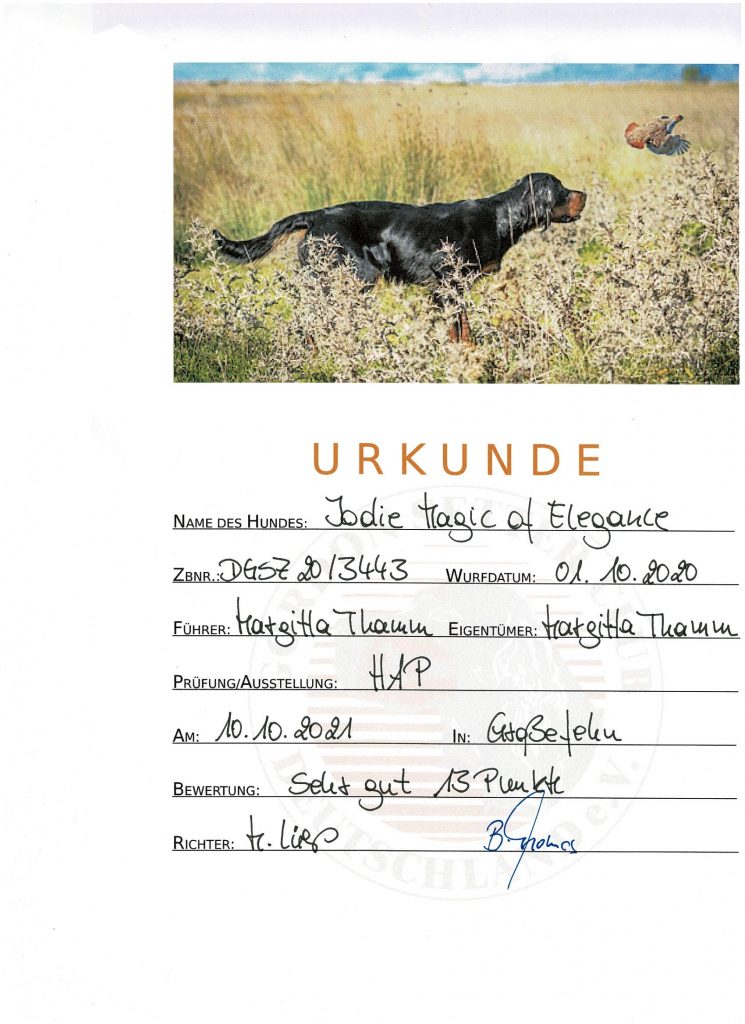 URKUNDE
NAME DES HUNDES: Jodie Magic of Elegance
ZBNR.: DGSZ 20/3443 WURFDATUM: 01.10.2020
FÜHRER: Margitta Thamm EIGENTÜMER: Margitta Thamm
PRÜFUNG/AUSSTELLUNG: HAP
AM: 10.10.2021 IN: Großefehn
BEWERTUNG: Sehr gut 13 Punkte
RICHTER: B. Thomas
GORDON SETTER CLUB
DEUTSCHLAND e.V.